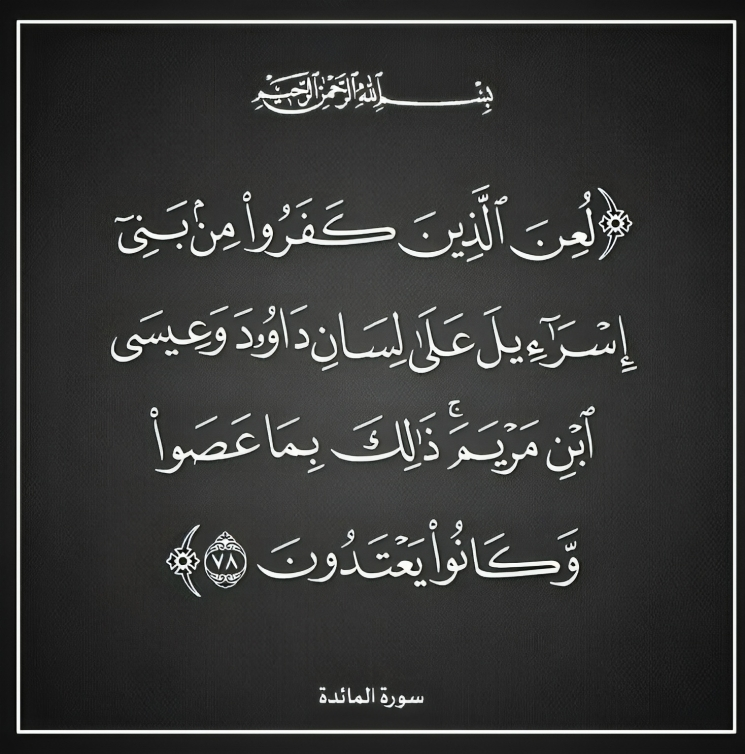 بِسْمِ ٱللَّهِ ٱلرَّحْمَٰنِ ٱلرَّحِيمِ
﴿لُعِنَ ٱلَّذِينَ كَفَرُوا۟ مِنۢ بَنِىٓ
إِسْرَٰٓءِيلَ عَلَىٰ لِسَانِ دَاوُۥدَ وَعِيسَى
ٱبْنِ مَرْيَمَ ۚ ذَٰلِكَ بِمَا عَصَوا۟
وَّكَانُوا۟ يَعْتَدُونَ ٧٨﴾
سورة المائدة